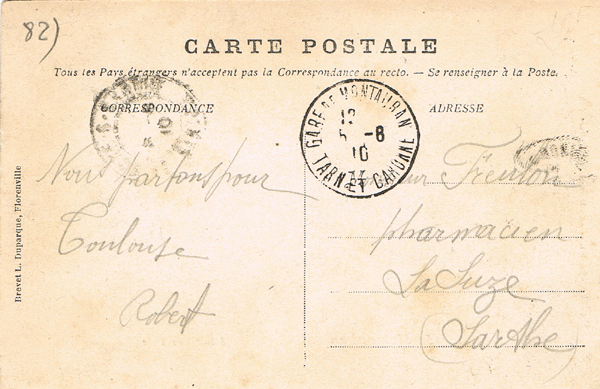 82)
CARTE POSTALE
Tous les Pays étrangers n'acceptent pas la Correspondance au recto. — Se renseigner à la Poste.
CORRESPONDANCE
ADRESSE
GARE DE MONTAUBAN
12
5 -8
10
TARN ET GARONNE
Nous partons pour
Toulouse
Robert
pharmacien
La Suze
(Sarthe)
Brevet L. Duparque, Florenville